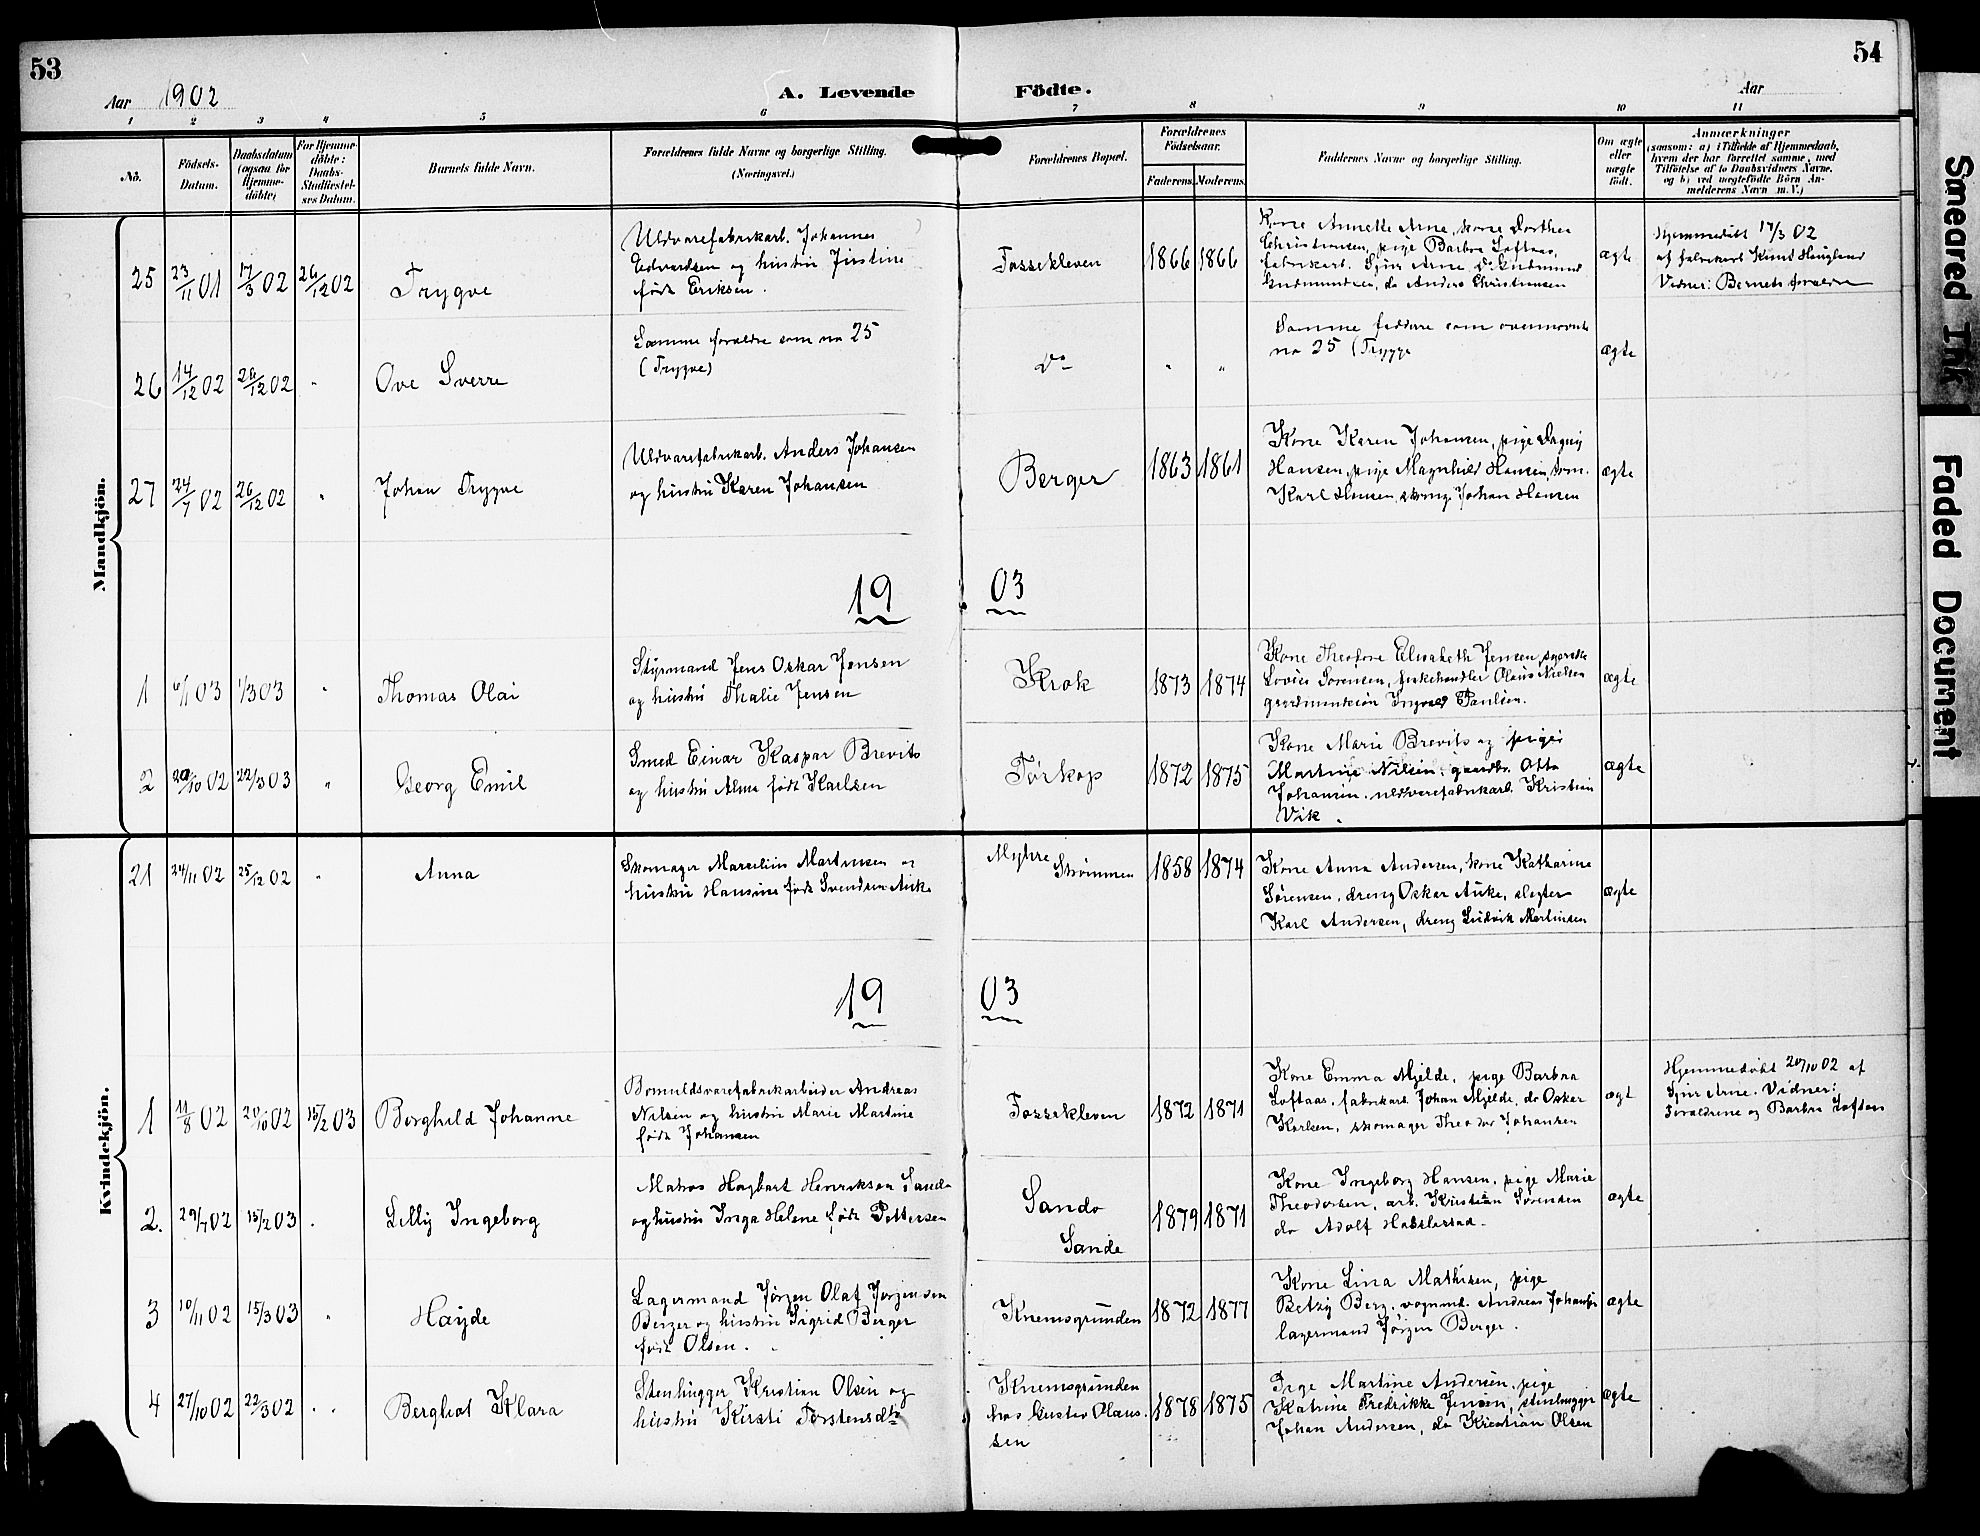 53
54
Aar 1902
A. Levende Födte.
Aar
1 2 3 4 5 6 7 8 9 10 11
No.
Födsels-
Datum.
Daabsdatum
(ogsaa for
Hjemme-
döbte)
For Hjemme-
döbte:
Daabs-
Stadfæstel-
ses Datum.
Barnets fulde Navn.
Forældrenes fulde Navne og borgerlige Stilling.
(Næringsvei.)
Forældrenes Bopæl.
Forældrenes
Födselsaar.
Faderens. Moderens.
Faddernes Navne og borgerlige Stilling.
Om ægte
eller
uægte
födt.
Anmærkninger
(saasom: a) i Tilfælde af Hjemmedaab,
hvem der har forrettet samme, med
Tilföielse af to Daabsvidners Navne.
og b) ved uægtefödte Börn An-
melderens Navn m. V.)
Mandkjön.
25 23/11 01 17/3 02 26/12 02 Trygve
Uldvarefabrikarb. Johannes
Edvardsen og hustru Justine
født Eriksen.
Fossekleven 1866 1866
Kone Annette Arne, kone Dorthea
Christiansen, pige Barbra Loftaas,
fabrikarb. Sjur Arne, do Gudmund
Gudmundsen, do Anders Christiansen
ægte
Hjemmedøbt 17/3 02
af fabrikarb Knut Haugland
Vidner: Barnets forældre
26 14/12 02 26/12 02 " Ove Sverre
Samme forældre som no 25
(Trygve)
Do " "
Samme faddere som ovennævnte
no 25 (Trygve
ægte
27 24/7 02 26/12 02 " Johan Trygve
Uldvarefabrikarb. Anders Johansen
og hustru Karen Johansen
Berger 1863 1861
Kone Karen Johansen, pige Dagny
Hansen, pige Magnhild Hansen, tom.
Karl Hansen, Johan Hansen
ægte
19 03
1 6/1 03 1/3 03 " Thomas Olai
Styrmand Jens Oskar Jensen
og hustru Thalie Jensen
Krok 1873 1874
Kone Theodore Elisabeth Jensen,
Lovise Sørensen, fiskehandler Olaus Nielsen
Ingvald Paulsen.
ægte
2 29/10 02 22/3 03 " Georg Emil
Smed Einar Kaspar Brevits
og hustru Alma født Karlsen
Tørkop 1872 1875
Kone Marie Brevits og pige
Martine Nilsen, gaardbr. Otto
Johansen, uldvarefabrikarb. Kristian
Vik.
ægte
Kvindekjön.
21 24/11 02 25/12 02 " Anna
Skomager Marselius Martinsen og
hustru Hansine født Svendsen Auke
Myhre
Strømmen 1858 1874
Kone Anna Andersen, kone Katharine
Sørensen, dreng Oskar Auke, slagter
Karl Andersen, dreng Ludvik Martinsen
ægte
19 03
1 11/8 02 20/10 02 15/2 03 Borghild Johanne
Bomuldsvarefabrikarbeider Andreas
Nilsen og hustru Marie Martine
født Johansen
Fossekleven 1872 1871
Kone Emma Mjelde, pige Barbra
Loftaas, fabrikarb. Johan Mjelde, do Oskar
Karlsen, skomager Theodor Johansen
ægt
Hjemmedøbt 20/10 02 af
Sjur Arne. Vidner:
Forældrene og Barbra Loftaas
2. 29/7 02 15/2 03 " Lilly Ingeborg
Matros Hagbart Henrikson Sande
og hustru Inga Helene født Pettersen
Sando
Sande 1879 1871
Kone Ingeborg Hansen, pige Marie
Theodorsen, arb. Kristian Sørensen
do Adolf
ægte
3 10/11 02 15/3 03 " Høyde
Lagermand Jørgen Olaf Jørgensen
Berger og hustru Sigrid Berger
født Olsen.
Knemsgrunden 1872 1877
Kone Lina Mathisen, pige
Betzy Berg, vognmd. Andreas Johansen
lagermand Jørgen Berger.
ægte
4 27/10 02 22/3 02 " Berghot Klara
Stenhugger Kristian Olsen og
hustru Kirsti Torstensdtr
Knemsgrunden
hos Gustav Olaus-
sen 1878 1875
Pige Martine Andersen, pige
Katrine Fredrikke Jensen, stenhugger
Johan Andersen, do Kristian Olsen
ægte
Smeared Ink
Faded Document